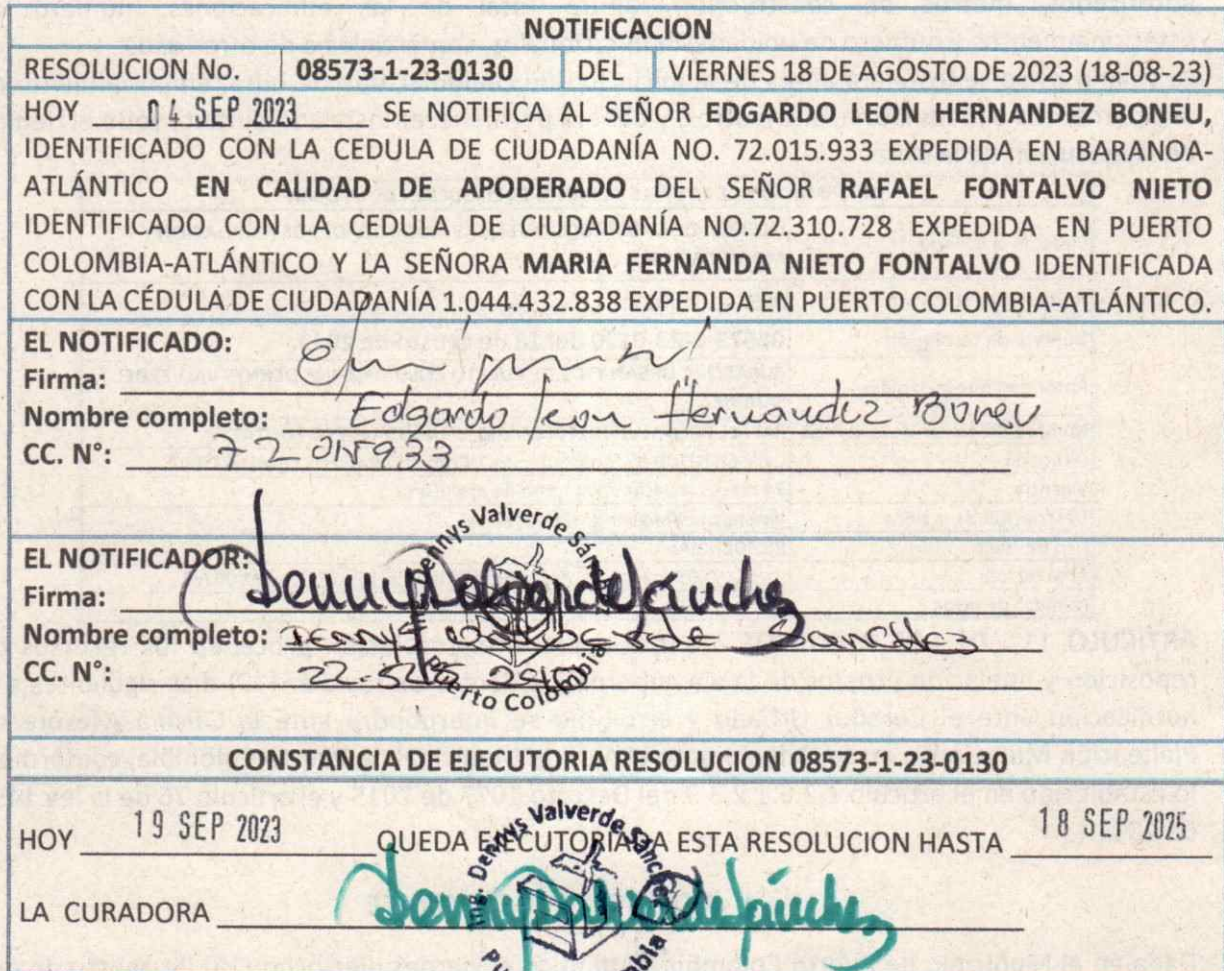 NOTIFICACION
RESOLUCION No. 08573-1-23-0130 DEL VIERNES 18 DE AGOSTO DE 2023 (18-08-23)
HOY 04 SEP 2023 SE NOTIFICA AL SEÑOR EDGARDO LEON HERNANDEZ BONEU,
IDENTIFICADO CON LA CEDULA DE CIUDADANÍA NO. 72.015.933 EXPEDIDA EN BARANOA-
ATLÁNTICO EN CALIDAD DE APODERADO DEL SEÑOR RAFAEL FONTALVO NIETO
IDENTIFICADO CON LA CEDULA DE CIUDADANÍA NO.72.310.728 EXPEDIDA EN PUERTO
COLOMBIA-ATLÁNTICO Y LA SEÑORA MARIA FERNANDA NIETO FONTALVO IDENTIFICADA
CON LA CÉDULA DE CIUDADANÍA 1.044.432.838 EXPEDIDA EN PUERTO COLOMBIA-ATLÁNTICO.
EL NOTIFICADO:
Firma:
Nombre completo: Edgardo Leon Hernandez Boneu
CC. N°: 72015933
EL NOTIFICADOR:
Firma: Dennys Valverde Sánchez
Dennys Valverde Sánchez
Nombre completo: Dennys Valverde Sanchez
CC. N°:
Puerto Colombia
CONSTANCIA DE EJECUTORIA RESOLUCION 08573-1-23-0130
HOY 19 SEP 2023 QUEDA EJECUTORIADA ESTA RESOLUCION HASTA 18 SEP 2025
Ing. Dennys Valverde Sánchez
LA CURADORA Dennys Valverde Sánchez